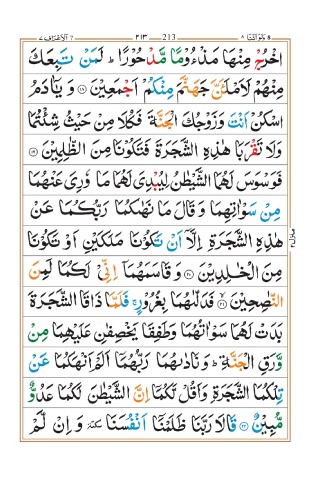 ولواننا ٨ 213 ٢١٣ الاعراف ٧
اخْرُجْ مِنْهَا مَذْءُوْمًا مَّدْحُوْرًا ؕ لَمَنْ تَبِعَكَ
مِنْهُمْ لَاَمْلَـَٔنَّ جَهَنَّمَ مِنْكُمْ اَجْمَعِيْنَ ﴿۱۸﴾ وَ يٰۤاٰدَمُ
اسْكُنْ اَنْتَ وَ زَوْجُكَ الْجَنَّةَ فَكُلَا مِنْ حَيْثُ شِئْتُمَا
وَلَا تَقْرَبَا هٰذِهِ الشَّجَرَةَ فَتَكُوْنَا مِنَ الظّٰلِمِيْنَ ﴿۱۹﴾
فَوَسْوَسَ لَهُمَا الشَّيْطٰنُ لِيُبْدِيَ لَهُمَا مَا وٗرِيَ عَنْهُمَا
مِنْ سَوْاٰتِهِمَا وَ قَالَ مَا نَهٰىكُمَا رَبُّكُمَا عَنْ
هٰذِهِ الشَّجَرَةِ اِلَّاۤ اَنْ تَكُوْنَا مَلَكَيْنِ اَوْ تَكُوْنَا
مِنَ الْخٰلِدِيْنَ ﴿۲۰﴾ وَ قَاسَمَهُمَاۤ اِنِّيْ لَكُمَا لَمِنَ
النّٰصِحِيْنَ ﴿۲۱﴾ فَدَلّٰىهُمَا بِغُرُوْرٍ ۚ فَلَمَّا ذَاقَا الشَّجَرَةَ
بَدَتْ لَهُمَا سَوْاٰتُهُمَا وَ طَفِقَا يَخْصِفٰنِ عَلَيْهِمَا مِنْ
وَّرَقِ الْجَنَّةِ ؕ وَ نَادٰىهُمَا رَبُّهُمَاۤ اَلَمْ اَنْهَكُمَا عَنْ
تِلْكُمَا الشَّجَرَةِ وَ اَقُلْ لَّكُمَاۤ اِنَّ الشَّيْطٰنَ لَكُمَا عَدُوٌّ
مُّبِيْنٌ ﴿۲۲﴾ قَالَا رَبَّنَا ظَلَمْنَاۤ اَنْفُسَنَا سكتة وَ اِنْ لَّمْ
منزل ٢